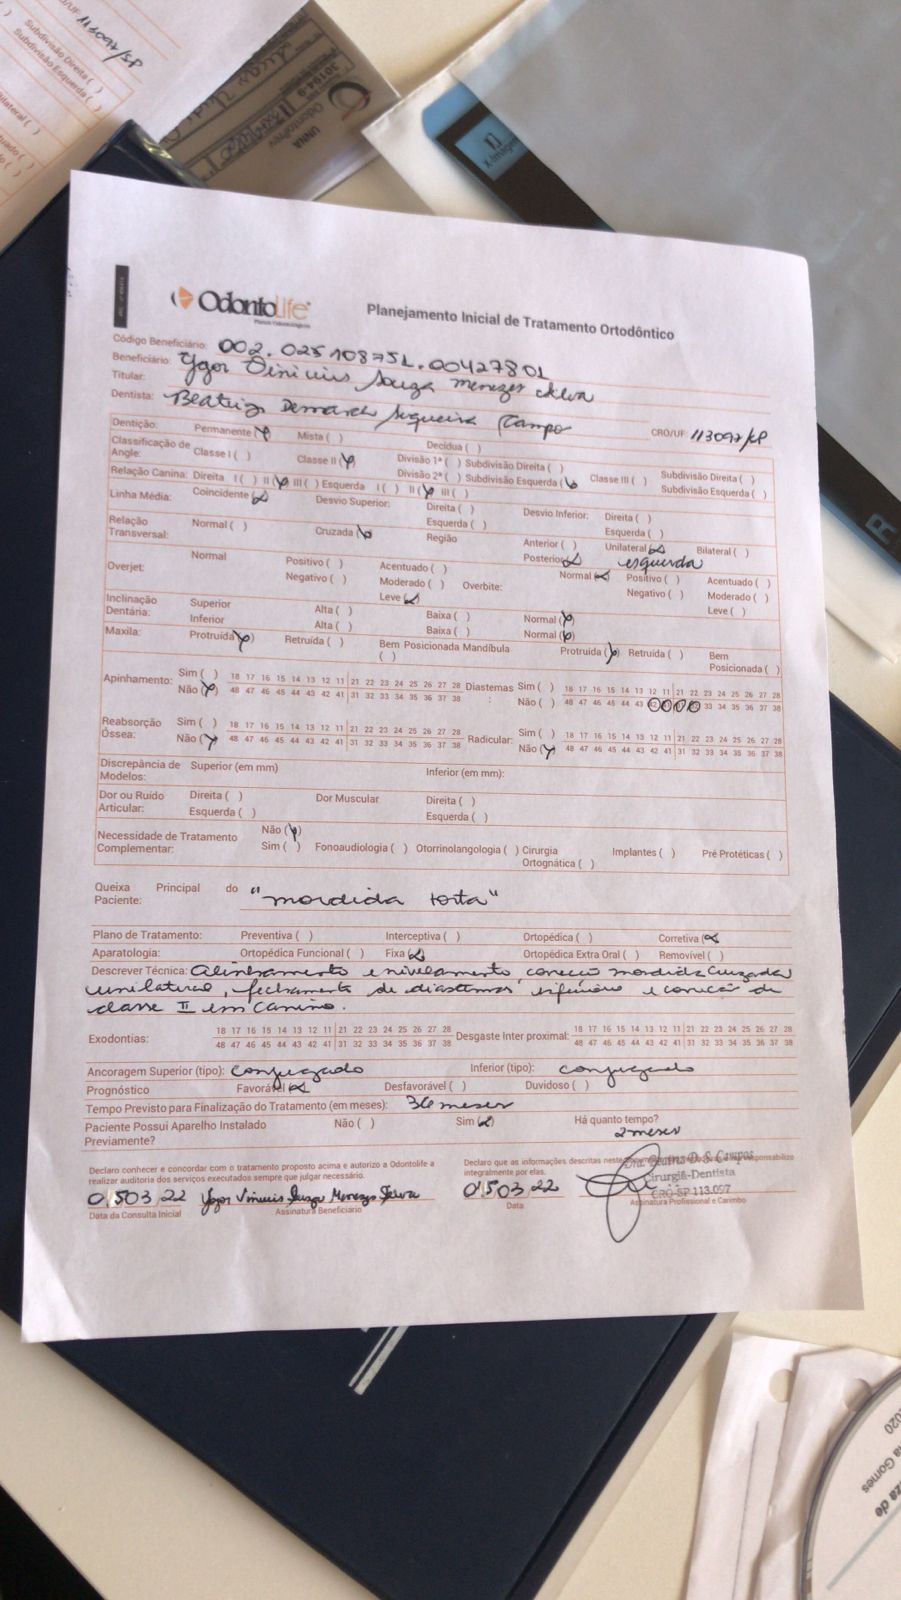 113097/SP
Subdivisão Direita ( )
Subdivisão Esquerda ( )
30194-9
OdontoPrev
UNNA
X-Imagem
R
OdontoLife
Planos Odontológicos
Planejamento Inicial de Tratamento Ortodôntico
Código Beneficiário: 002.025108751.00427801
Beneficiário: Ygor Vinicius Souza Menezes Silva
Titular:
Dentista: Beatriz Demarch Siqueira Campo CRO/UF: 113097/SP
Dentição: Permanente (x) Mista ( ) Decídua ( )
Classificação de Angle: Classe I ( ) Classe II (x) Divisão 1ª ( ) Subdivisão Direita ( ) Classe III ( ) Subdivisão Direita ( )
Divisão 2ª ( ) Subdivisão Esquerda (x) Subdivisão Esquerda ( )
Relação Canina: Direita I ( ) II (x) III ( ) Esquerda I ( ) II (x) III ( )
Linha Média: Coincidente (x) Desvio Superior: Direita ( ) Desvio Inferior: Direita ( )
Esquerda ( ) Esquerda ( )
Relação Transversal: Normal ( ) Cruzada (x) Região Anterior ( ) Unilateral (x) Bilateral ( )
Posterior (x) esquerda
Overjet: Normal Positivo ( ) Acentuado ( ) Overbite: Normal (x) Positivo ( ) Acentuado ( )
Negativo ( ) Moderado ( ) Negativo ( ) Moderado ( )
Leve (x) Leve ( )
Inclinação Dentária: Superior Alta ( ) Baixa ( ) Normal (x)
Inferior Alta ( ) Baixa ( ) Normal (x)
Maxila: Protruída (x) Retruída ( ) Bem Posicionada ( ) Mandíbula Protruída (x) Retruída ( ) Bem Posicionada ( )
Apinhamento: Sim ( ) 18 17 16 15 14 13 12 11 21 22 23 24 25 26 27 28 Diastemas : Sim ( ) 18 17 16 15 14 13 12 11 21 22 23 24 25 26 27 28
Não (x) 48 47 46 45 44 43 42 41 31 32 33 34 35 36 37 38 Não ( ) 48 47 46 45 44 43 42 41 31 32 33 34 35 36 37 38
Reabsorção Óssea: Sim ( ) 18 17 16 15 14 13 12 11 21 22 23 24 25 26 27 28 Radicular: Sim ( ) 18 17 16 15 14 13 12 11 21 22 23 24 25 26 27 28
Não (x) 48 47 46 45 44 43 42 41 31 32 33 34 35 36 37 38 Não (x) 48 47 46 45 44 43 42 41 31 32 33 34 35 36 37 38
Discrepância de Modelos: Superior (em mm) Inferior (em mm):
Dor ou Ruído Articular: Direita ( ) Dor Muscular Direita ( )
Esquerda ( ) Esquerda ( )
Necessidade de Tratamento Complementar: Não (x)
Sim ( ) Fonoaudiologia ( ) Otorrinolangologia ( ) Cirurgia Ortognática ( ) Implantes ( ) Pré Protéticas ( )
Queixa Principal do Paciente: "mordida torta"
Plano de Tratamento: Preventiva ( ) Interceptiva ( ) Ortopédica ( ) Corretiva (x)
Aparatologia: Ortopédica Funcional ( ) Fixa (x) Ortopédica Extra Oral ( ) Removível ( )
Descrever Técnica: Alinhamento e nivelamento correção mordida cruzada
unilateral, fechamento de diastemas inferiores e correção de
classe II em canino.
Exodontias: 18 17 16 15 14 13 12 11 21 22 23 24 25 26 27 28 Desgaste Inter proximal: 18 17 16 15 14 13 12 11 21 22 23 24 25 26 27 28
48 47 46 45 44 43 42 41 31 32 33 34 35 36 37 38 48 47 46 45 44 43 42 41 31 32 33 34 35 36 37 38
Ancoragem Superior (tipo): conjugado Inferior (tipo): conjugado
Prognóstico Favorável (x) Desfavorável ( ) Duvidoso ( )
Tempo Previsto para Finalização do Tratamento (em meses): 36 meses
Paciente Possui Aparelho Instalado Previamente? Não ( ) Sim (x) Há quanto tempo?
2 meses
Declaro conhecer e concordar com o tratamento proposto acima e autorizo a Odontolife a
realizar auditoria dos serviços executados sempre que julgar necessário.
01503,22 Ygor Vinicius Souza Menezes Silva
Data da Consulta Inicial Assinatura Beneficiário
Declaro que as informações descritas neste responsabilizo
integralmente por elas.
01503,22
Data
Dra. Beatriz D. S. Campos
Cirurgiã-Dentista
CRO-SP 113.097
Assinatura Profissional e Carimbo
2020
Gomes